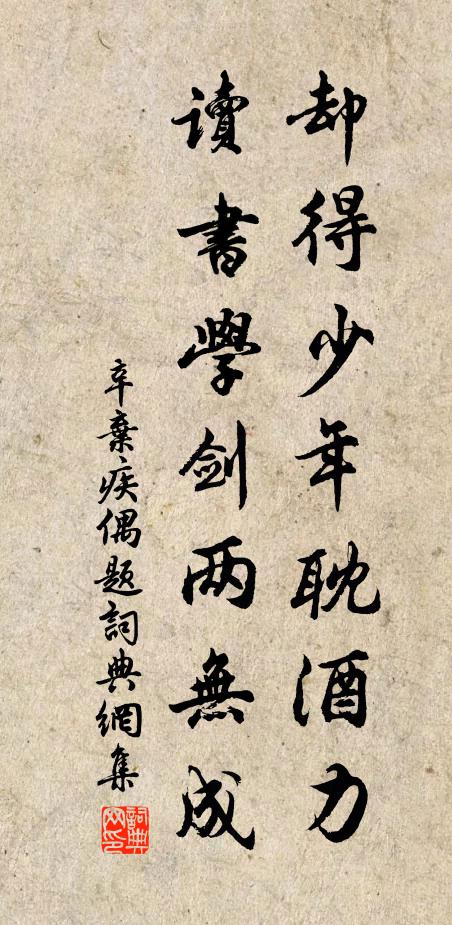 却得少年耽酒力
讀書學剑两無成
辛棄疾偶题詞典網集
詞典网印